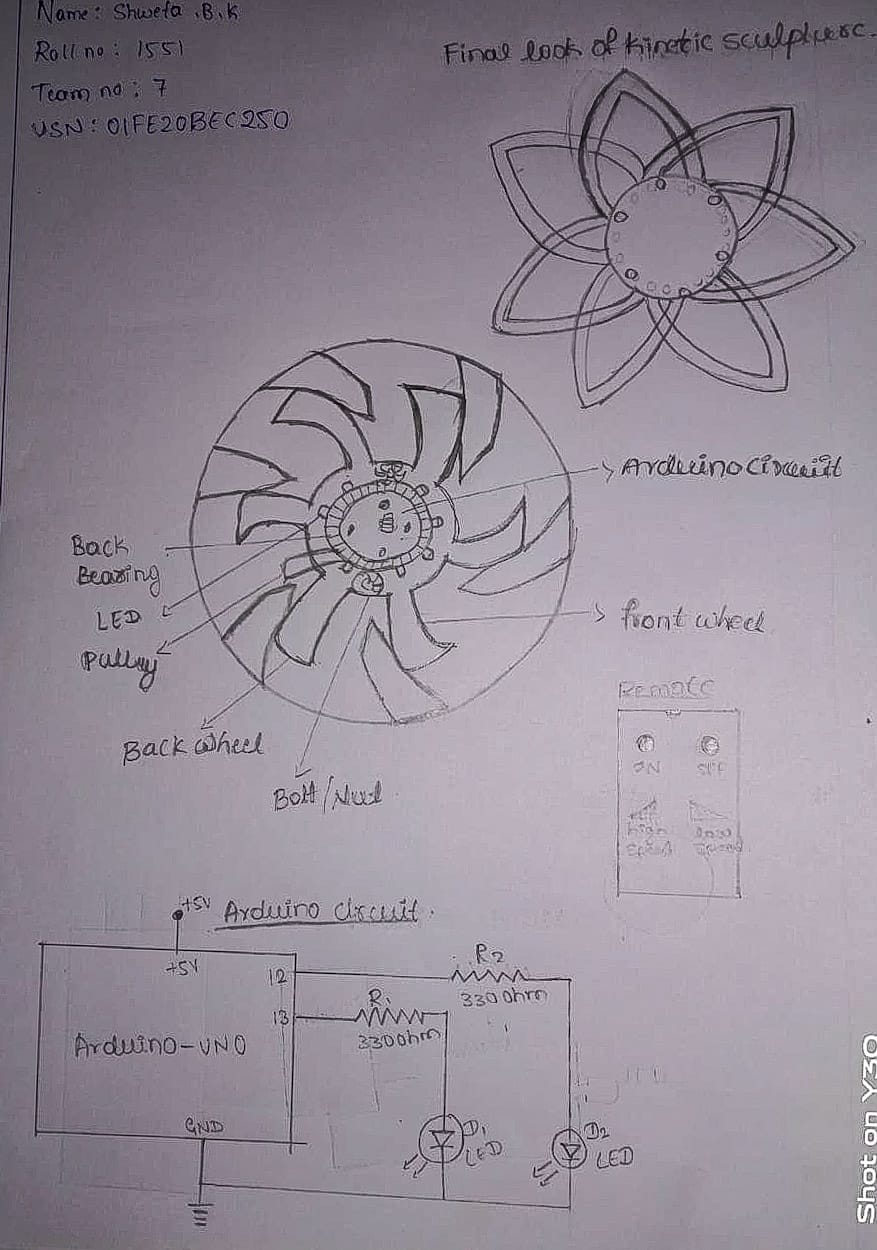 Name: Shweta .B.K
Roll no: 1551
Team no: 7
USN: 01FE20BEC250
Final look of kinetic sculpture.
Arduino Circuit
Back
Bearing
LED
Pulley
front wheel
Back wheel
Bolt/Nut
Remote
ON OFF
high low
speed speed
+5V Arduino circuit.
+5V
12
13
R2
330 ohm
R1
330 ohm
Arduino-UNO
GND
D1
LED
D2
LED
Shot on Y30